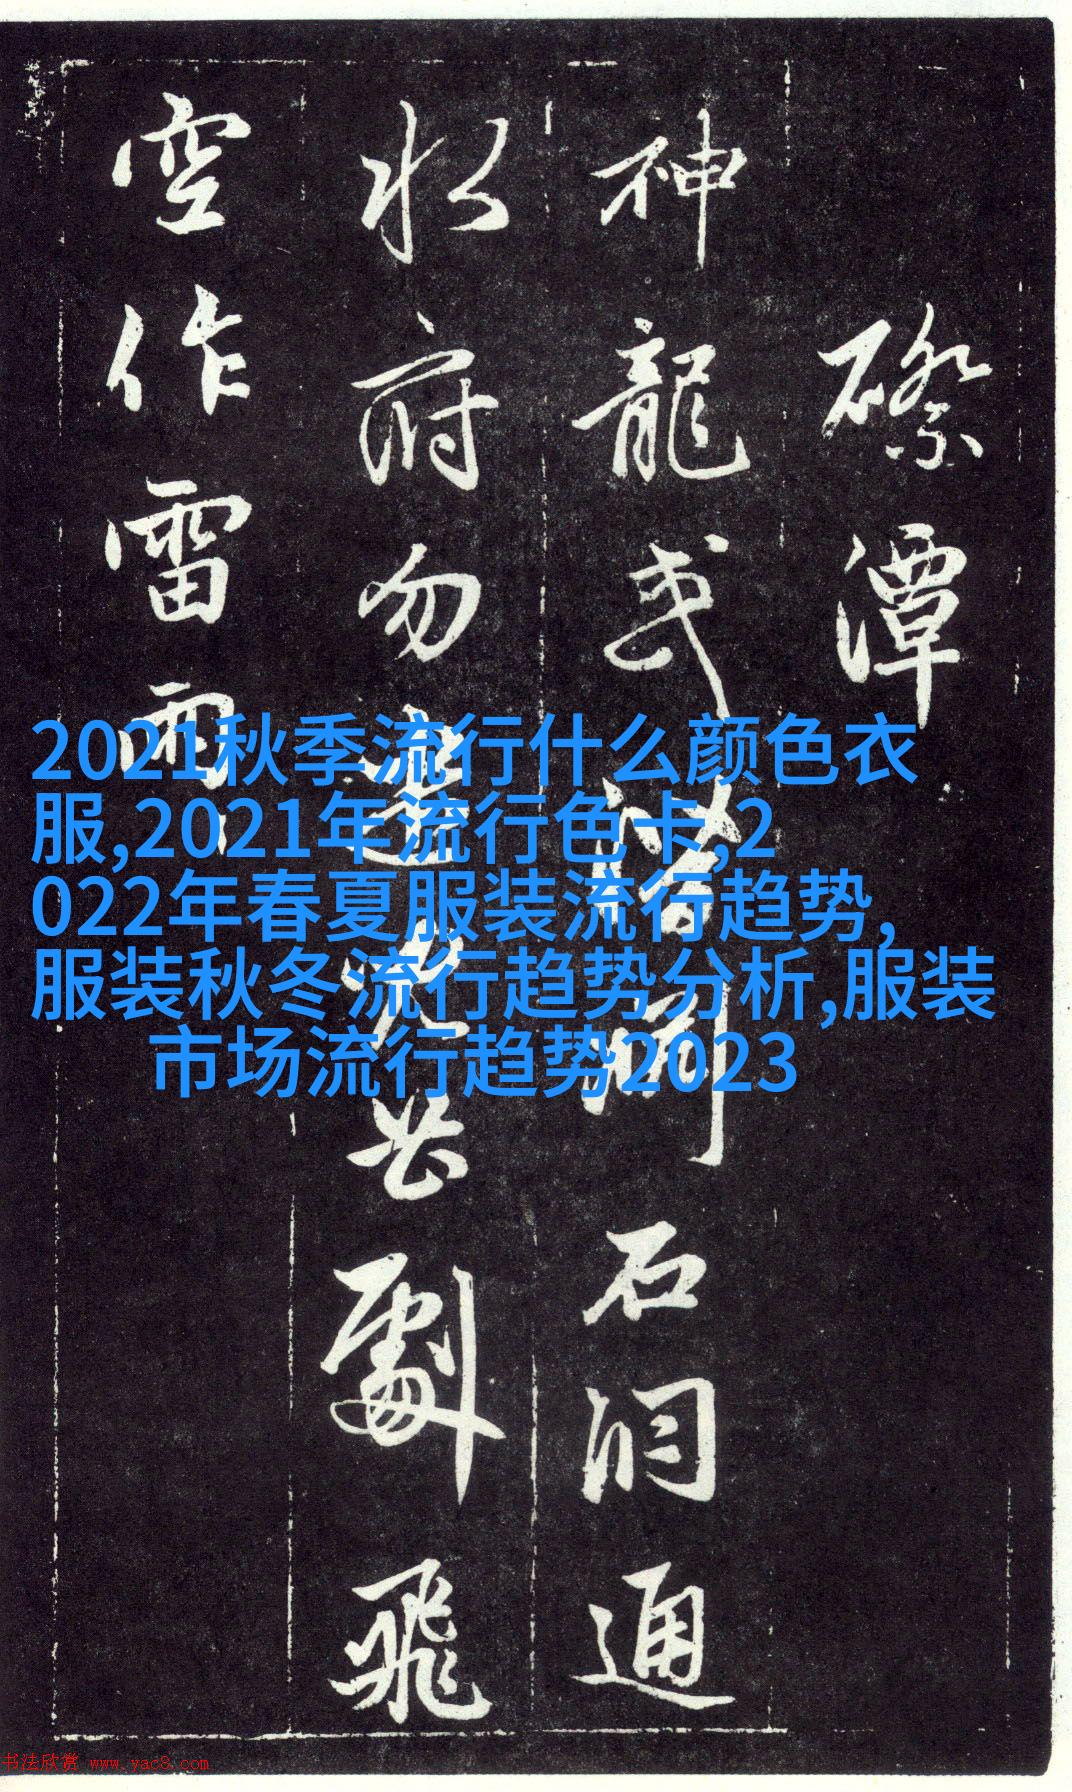 磜潭
神龍或潛 石洞通
水府勿 共 飛
空作雷雨
2021秋季流行什么颜色衣
服,2021年流行色卡,2
022年春夏服装流行趋势,
服装秋冬流行趋势分析,服装
市场流行趋势2023
书法欣赏 www.yac8.com